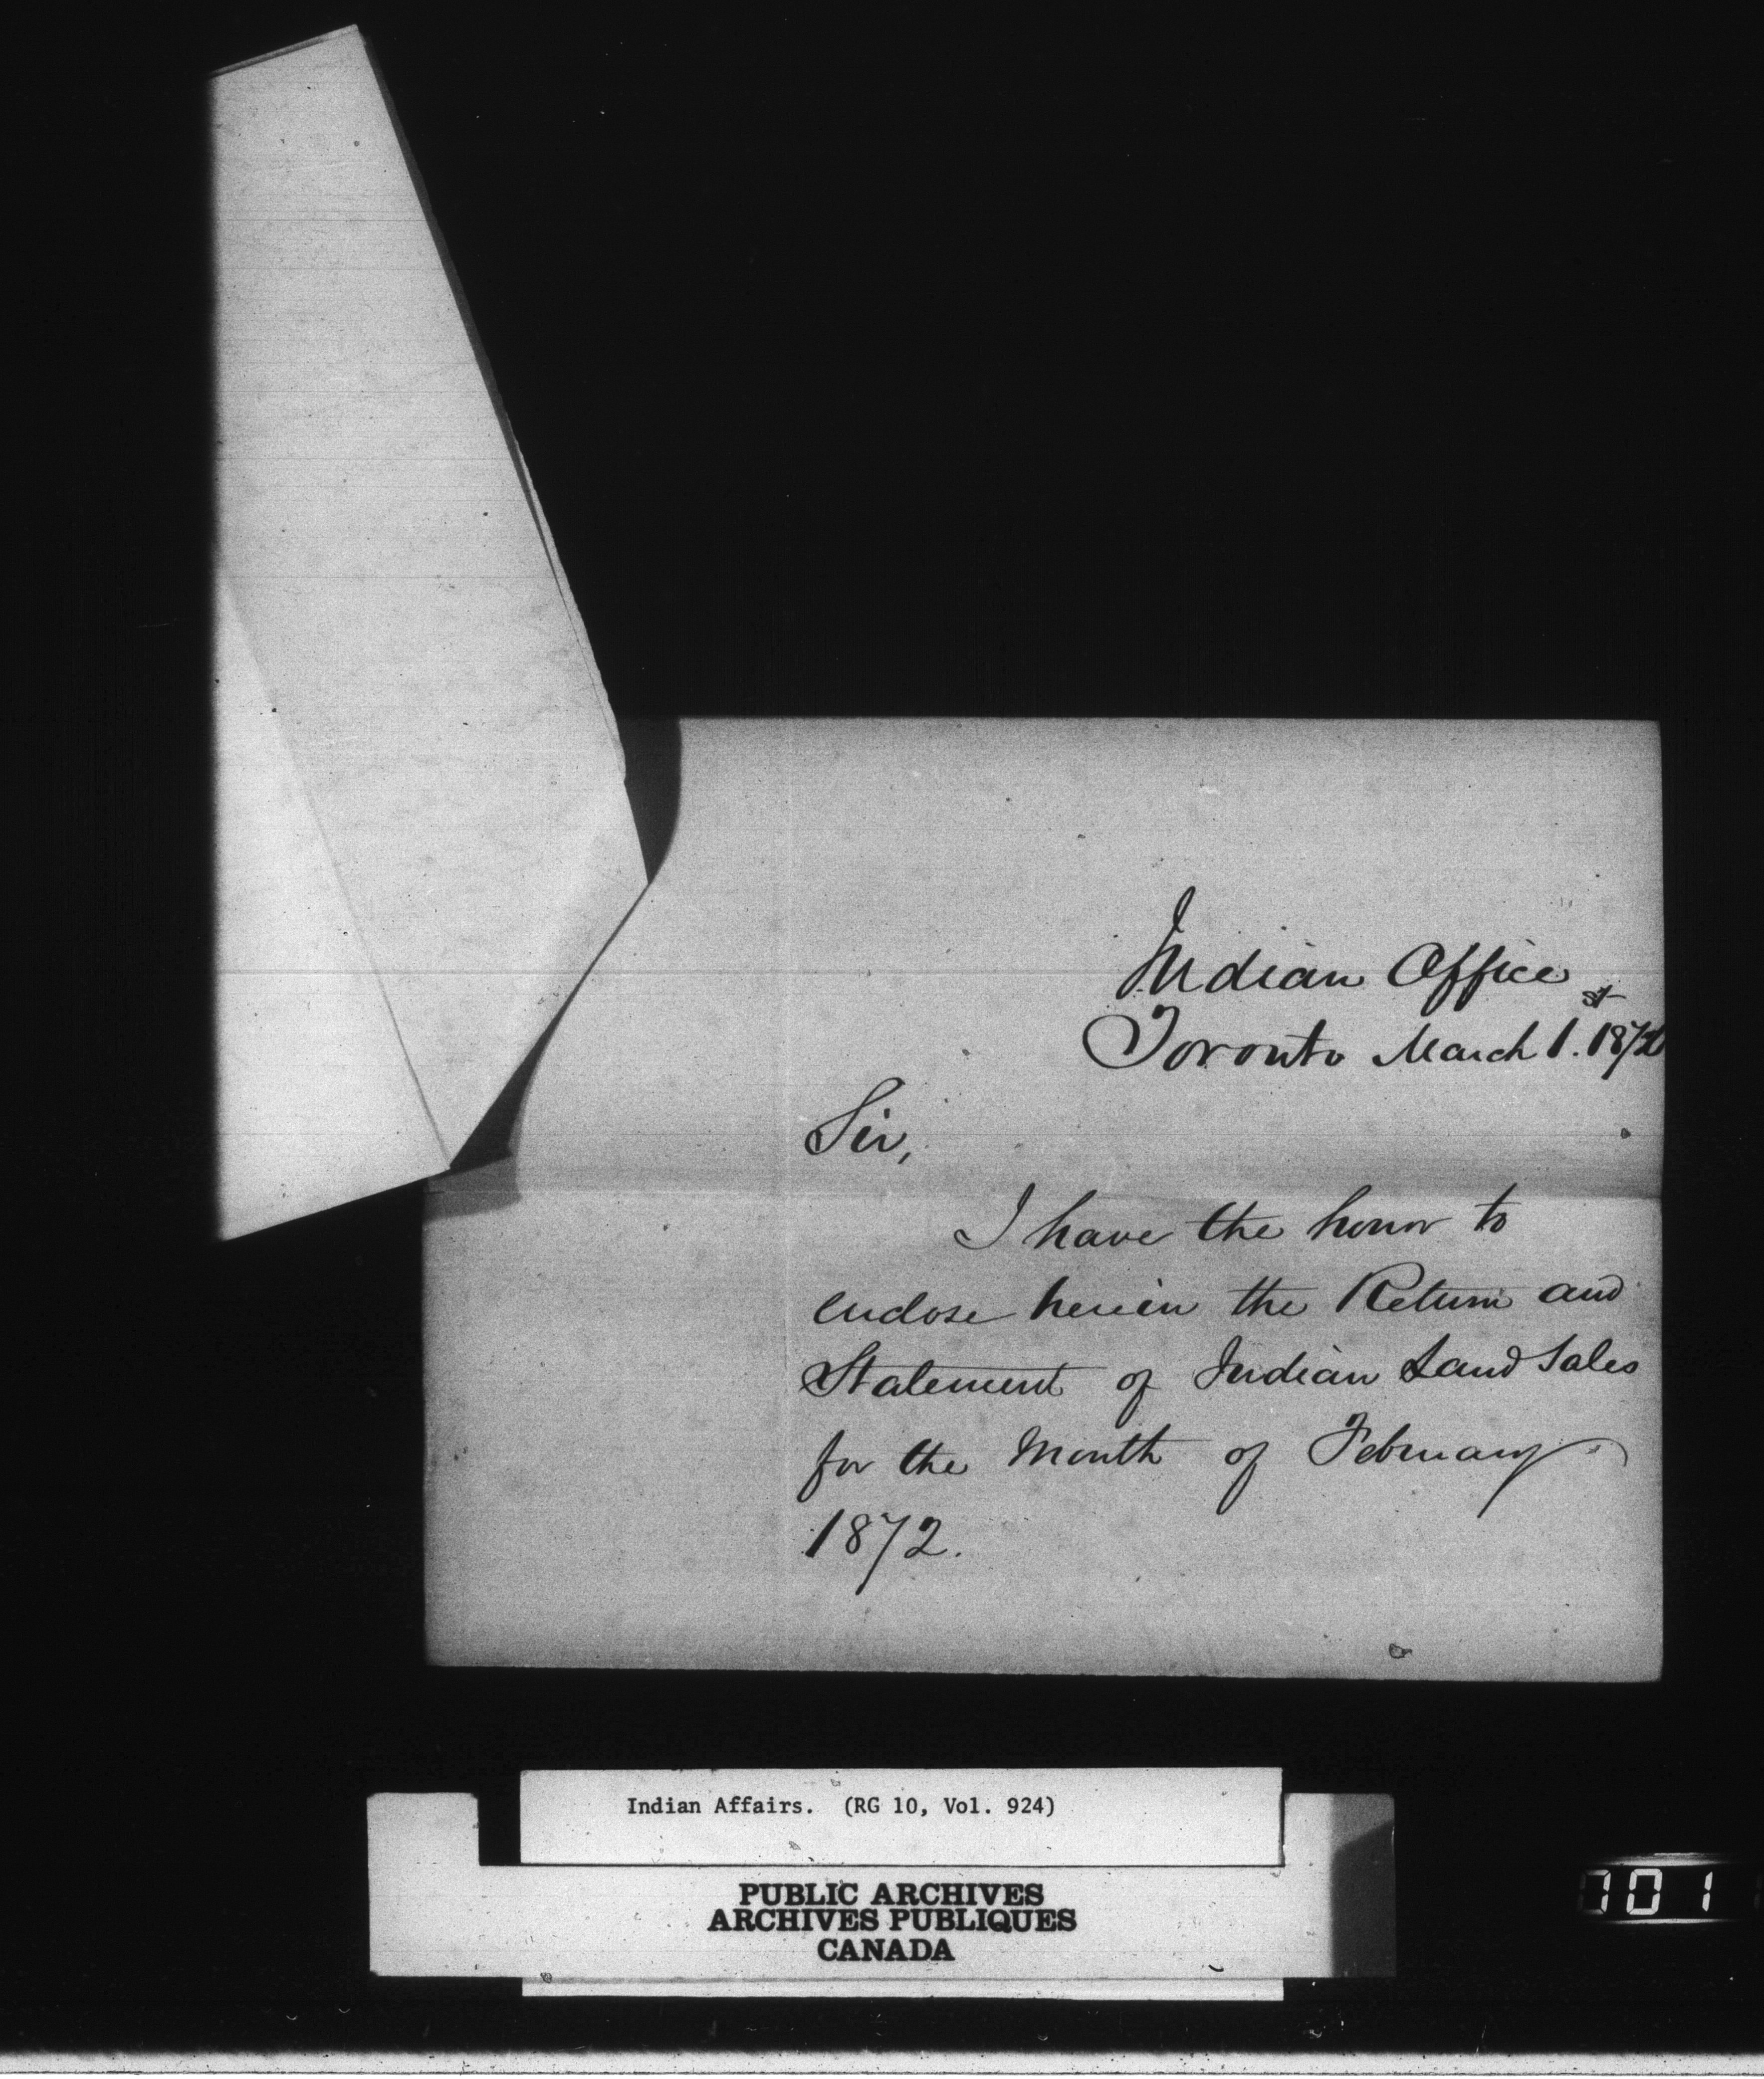 Indian Office
Toronto March 1st. 1872
Sir,
I have the honor to
enclose herein the Return and
Statement of Indian Land Sales
for the Month of February
1872.
Indian Affairs. (RG 10, Vol. 924)
PUBLIC ARCHIVES
ARCHIVES PUBLIQUES
CANADA
701